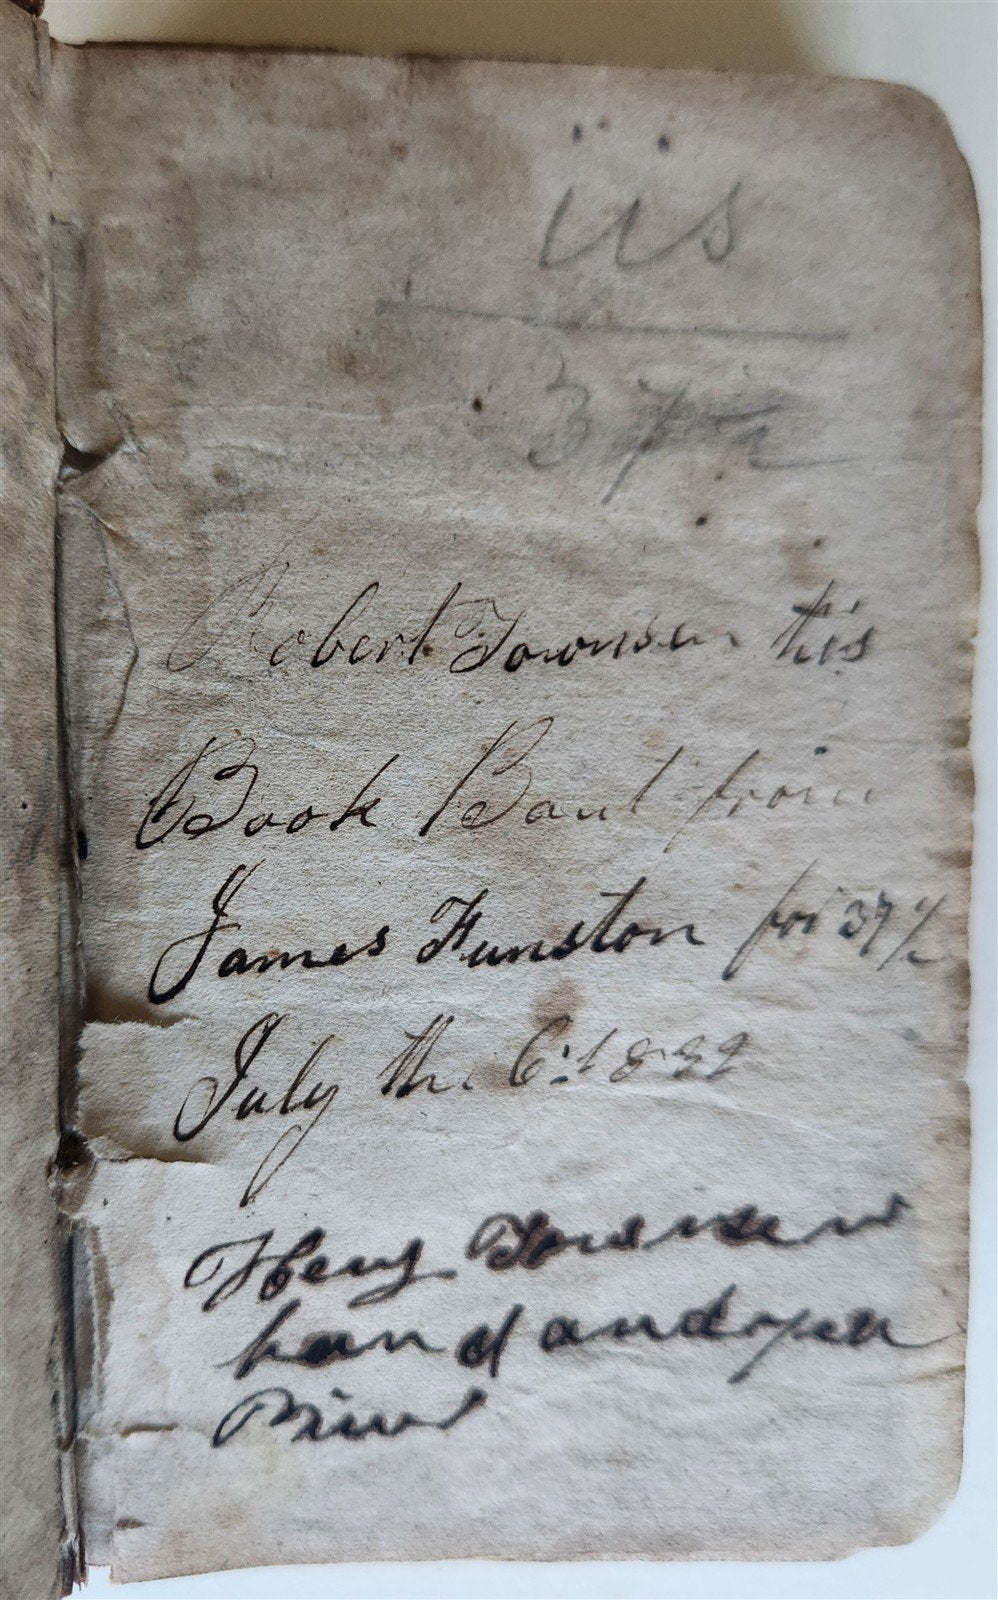 iis
37 1/2
Robert Townsen his
Book Baut from
James Funston for 37 1/2
July the 6 1839
Henry Townsen
hand and pen